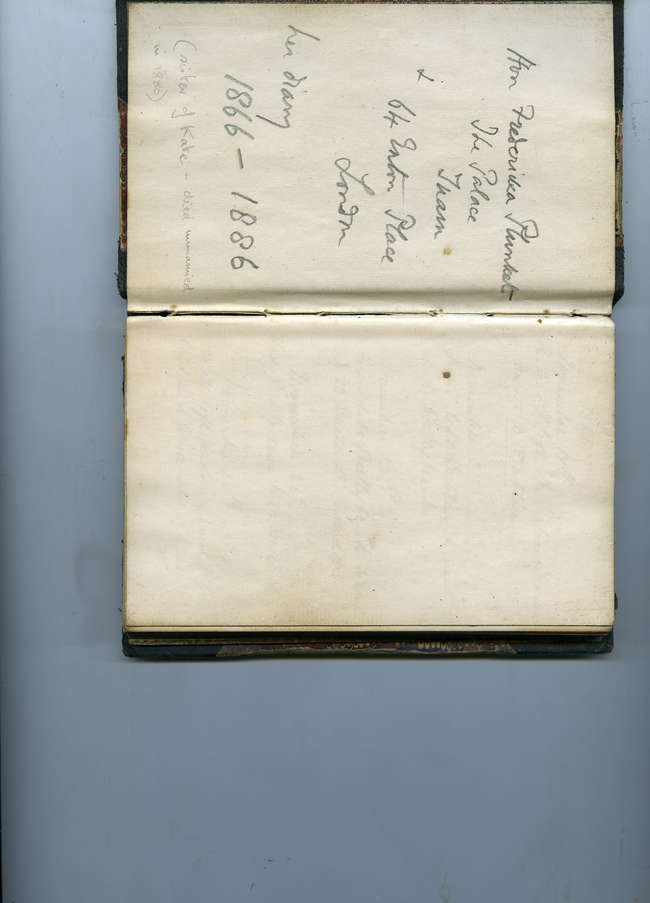 Hon Fredericka Plunket
The Palace
Tuam
&
64 Eaton Place
London
her diary
1866 – 1886
(sister of Kate – died unmarried
in 1886)